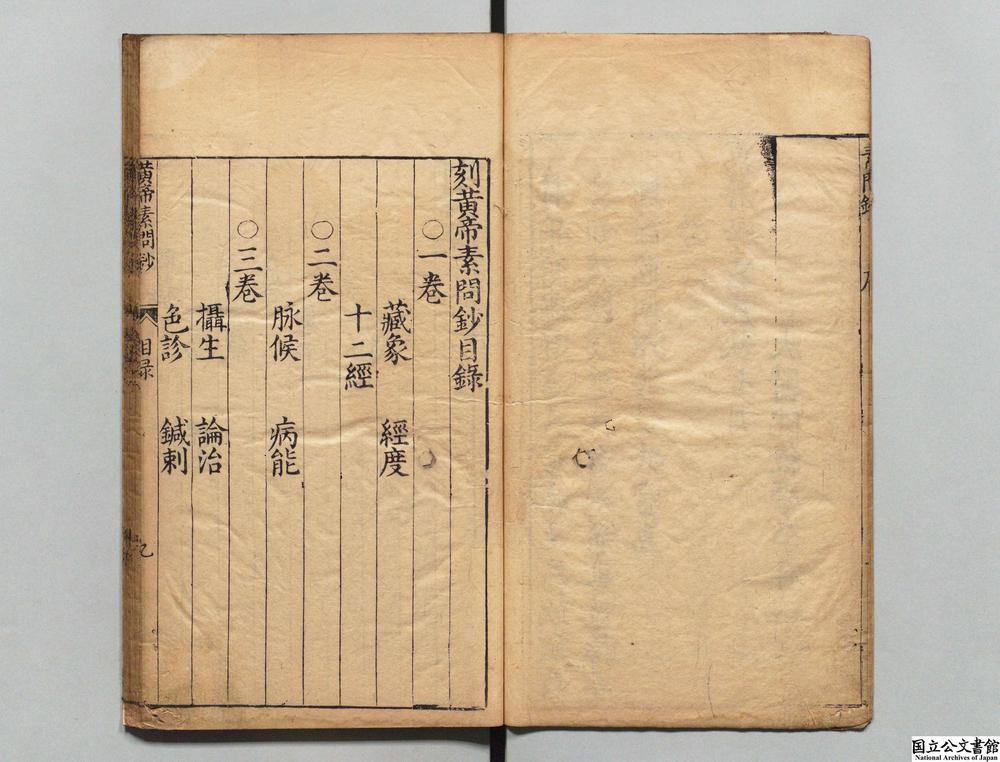 刻黃帝素問鈔目錄
○一卷
藏象 經度
十二經
○二卷
脉候 病能
○三卷
攝生 論治
色診 鍼刺
黃帝素問鈔 目录
国立公文書館
National Archives of Japan